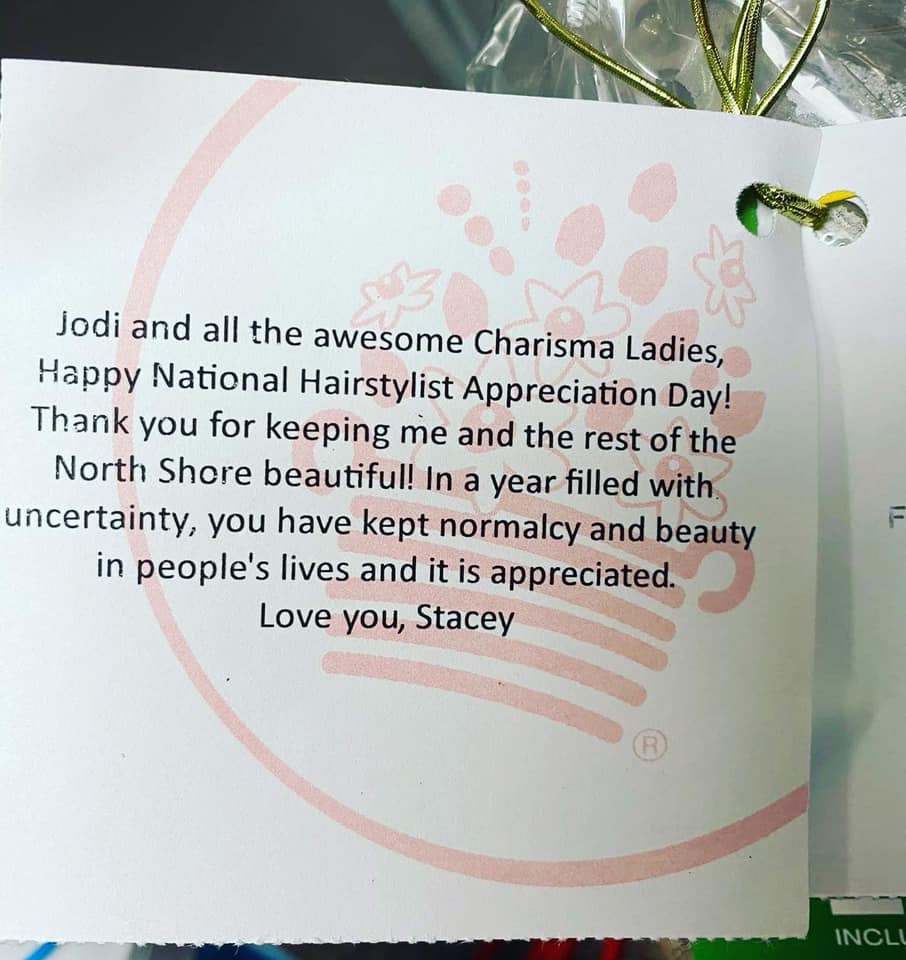 Jodi and all the awesome Charisma Ladies,
Happy National Hairstylist Appreciation Day!
Thank you for keeping me and the rest of the
North Shore beautiful! In a year filled with
uncertainty, you have kept normalcy and beauty
in people's lives and it is appreciated.
Love you, Stacey
®
F
INCLU